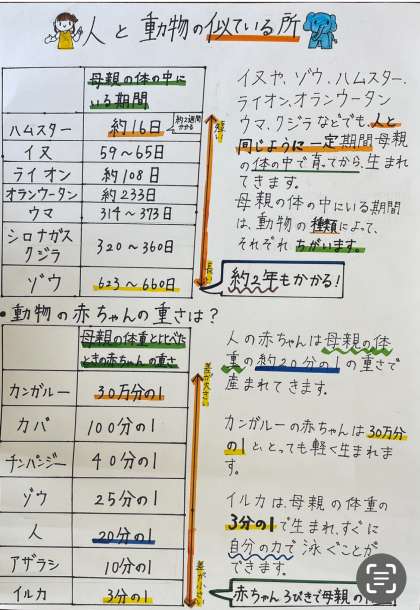 人と動物の似ている所
母親の体の中に
いる期間
ハムスター 約16日 約2週間かかる
イヌ 59〜65日
ライオン 約108日
オランウータン 約233日
ウマ 314〜373日
シロナガス
クジラ 320〜360日
ゾウ 623〜660日
短い
長い
イヌや、ゾウ、ハムスター、
ライオン、オランウータン
ウマ、クジラなどでも、人と
同じように一定期間母親
の体の中で育ってから、生まれ
てきます。
母親の体の中にいる期間
は、動物の種類によって、
それぞれちがいます。
約2年もかかる!
・動物の赤ちゃんの重さは?
母親の体重とくらべた
ときの赤ちゃんの重さ
カンガルー 30万分の1
カバ 100分の1
チンパンジー 40分の1
ゾウ 25分の1
人 20分の1
アザラシ 10分の1
イルカ 3分の1
差が大きい
差が小さい
人の赤ちゃんは母親の体
重の約20分の1の重さで
産まれてきます。
カンガルーの赤ちゃんは30万分
の1と、とっても軽く生まれま
す。
イルカは、母親の体重の
3分の1で生まれ、すぐに
自分の力で泳ぐことが
できます。
赤ちゃん3びきで母親の